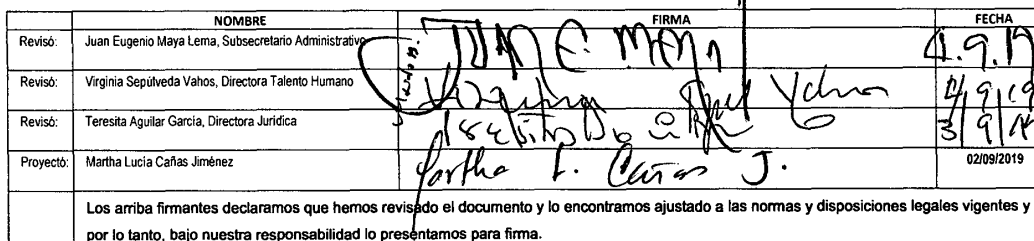 NOMBRE FIRMA FECHA
Revisó: Juan Eugenio Maya Lema, Subsecretario Administrativo JUAN E. MAYA 4.9.19
Revisó: Virginia Sepúlveda Vahos, Directora Talento Humano Virginia 4/9/19
Revisó: Teresita Aguilar García, Directora Jurídica 3/9/19
Proyectó: Martha Lucía Cañas Jiménez Martha L. Cañas J. 02/09/2019
Los arriba firmantes declaramos que hemos revisado el documento y lo encontramos ajustado a las normas y disposiciones legales vigentes y
por lo tanto, bajo nuestra responsabilidad lo presentamos para firma.